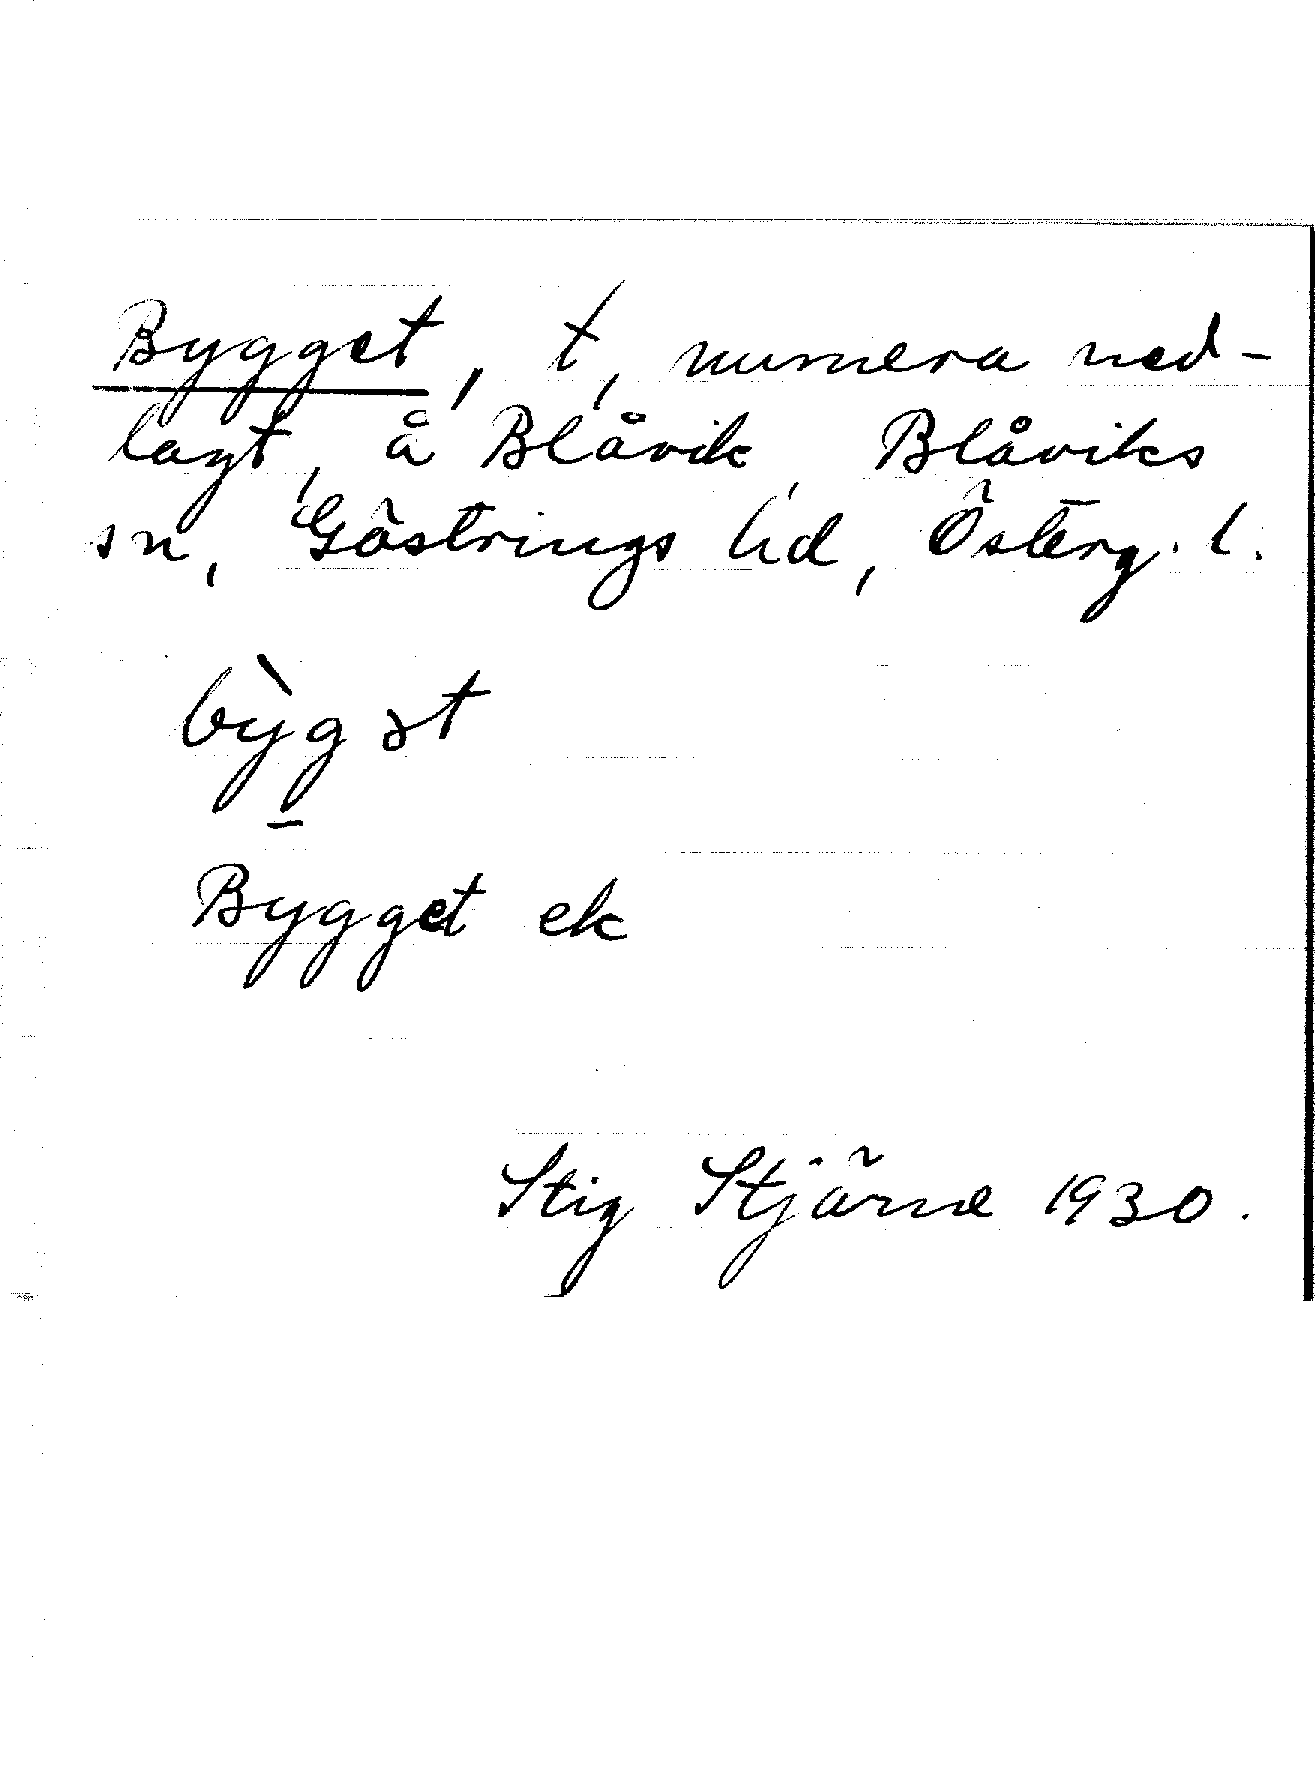 Bygget, t, numera ned-
lagt, å Blåvik, Blåviks
sn, Göstrings hd, Österg. l.
bỳg̲ət
Bygget ek
Stig Stjärne 1930.